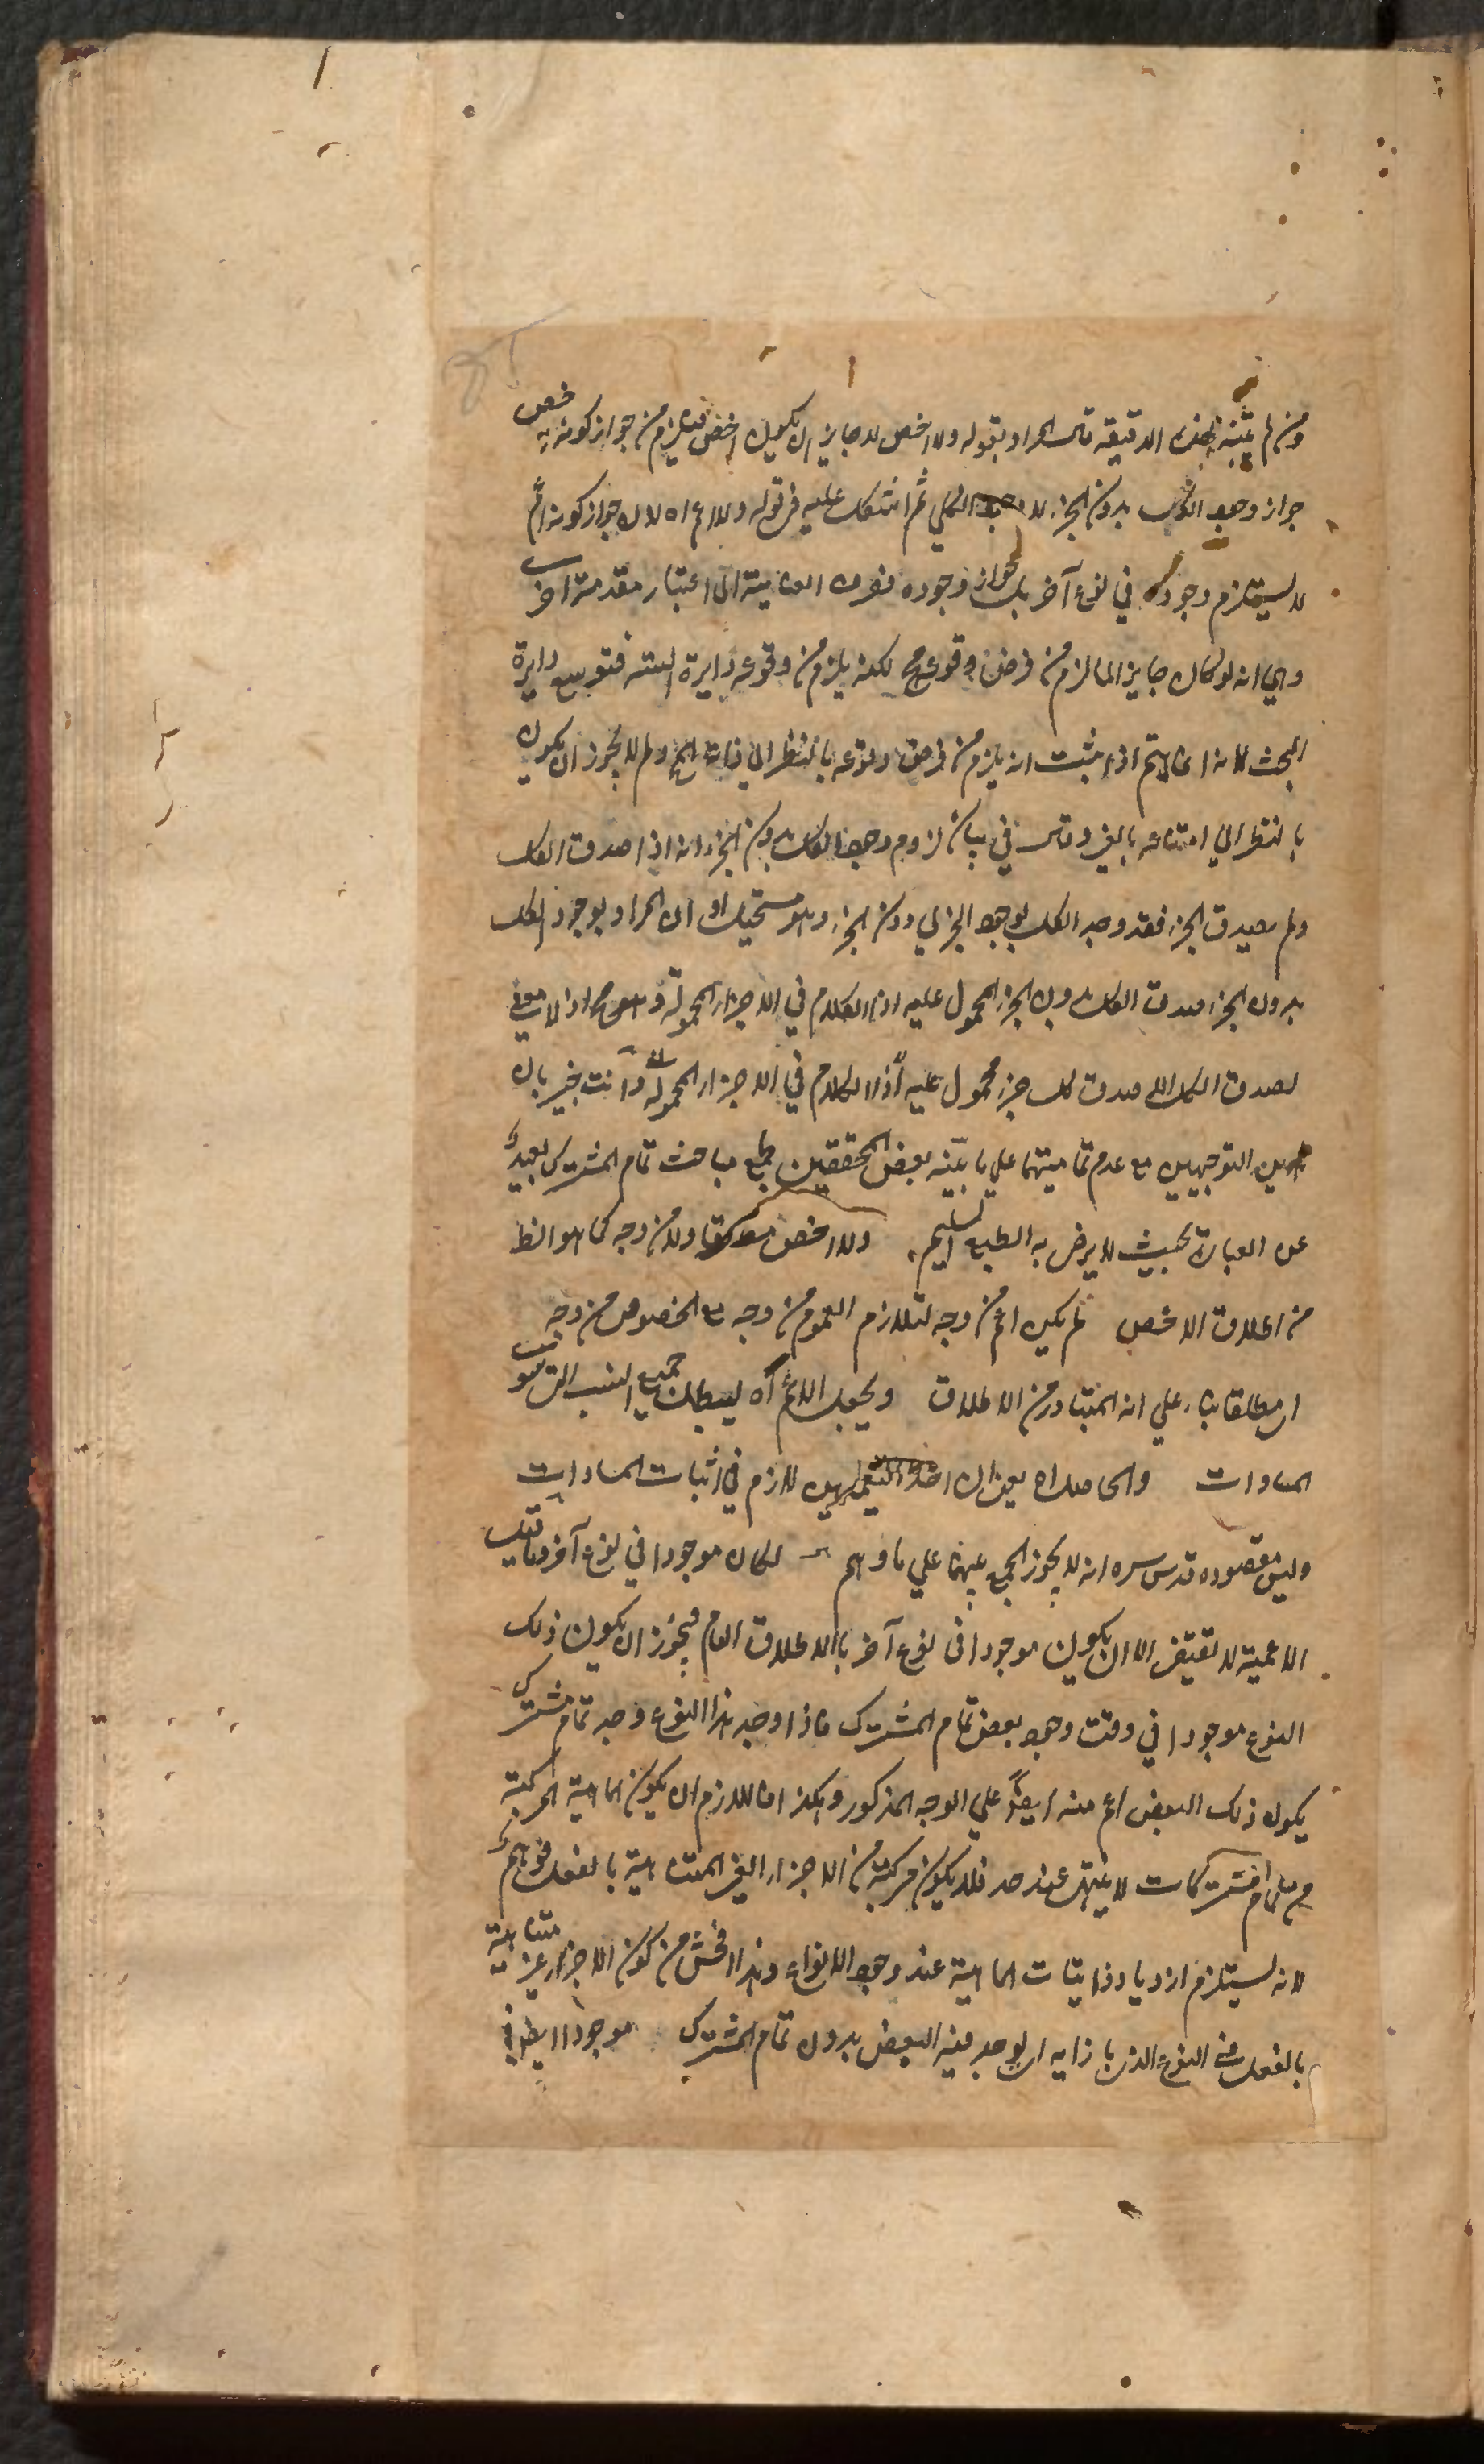 ومن لم يتنبه لهذه الدقيقة قال المراد بقوله ولا اخص لا جايز ان يكون اخص فيلزم من جواز كونه اخص
جواز وجود الكل بدون الجزء لا الكلي ثم اشكل عليه في قوله ولا اعم اه لان جواز كونه اعم
لا يستلزم وجوده في نوع آخر بل جواز وجوده فنوى العناية الى اعتبار مقدمة اخرى
وهي انه لو كان جايزا لما لزم من فرض وقوعه مح لكنه يلزم من وقوعه دايرة السنه فتوسع دايرة
البحث لانه انما يتم اذا ثبت انه يلزم من فرض وقوعه بالنظر الى ذاته المح ولم لا يجوز ان يكون
بالنظر الى امتناعه بالغير وقال في بيان لزوم وجود الكل بدون الجزء انه اذا صدق الكل
ولم يصدق الجزء فقد وجد الكل بوجود الجزئي دون الجزء وهو مستحيل او ان المراد بوجود الكل
بدون الجزء صدق الكل بدون الجزء المحمول عليه اذ الكلام في الاجزاء المحمولة وهو مح اذ لا معنى
لصدق الكل الا صدق كل جزء محمول عليه اذ الكلام في الاجزاء المحمولة وانت خبير بان
هذين التوجيهين مع عدم تماميتهما على ما بينه بعض المحققين في جميع مباحث تمام المشترك بعيد
عن العبارة بحيث لا يرضى به الطبع السليم ولا اخص مطلقا ولا من وجه كما هو الظ
من اطلاق الاخص لم يكن اعم من وجه لتلازم العموم من وجه مع الخصوص من وجه
اى مطلقا بناء على انه المتبادر من الاطلاق ويجعل الاعم آه ليبطل جميع النسب التي سوى
المساوات والحاصل اه يعني ان احد التعميمين لازم في اثبات المساوات
وليس مقصوده قدس سره انه لا يجوز الجمع بينهما على ما وهم لكان موجودا في نوع آخر
الاعمية لا تقتضى الا ان يكون موجودا في نوع آخر بالاطلاق العام فيجوز ان يكون ذلك
النوع موجودا في وقت وجود بعض تمام المشترك فاذا وجد هذا النوع وجد تمام مشترك
يكون ذلك البعض اعم منه ايضا على الوجه المذكور وهكذا فاللازم ان يكون الماهية المركبة
من تمام مشتركات لا ينتهى عند حد فلا يكون مركبة من الاجزاء الغير المتناهية بالفعل فوهم
لانه يستلزم ازدياد ذاتيات الماهية عند وجود الانواع وهذا افحش من كون الاجزاء غير متناهية
بالفعل في النوع الذي بازايه اى يوجد فيه البعض بدون تمام المشترك موجودا ايضا في